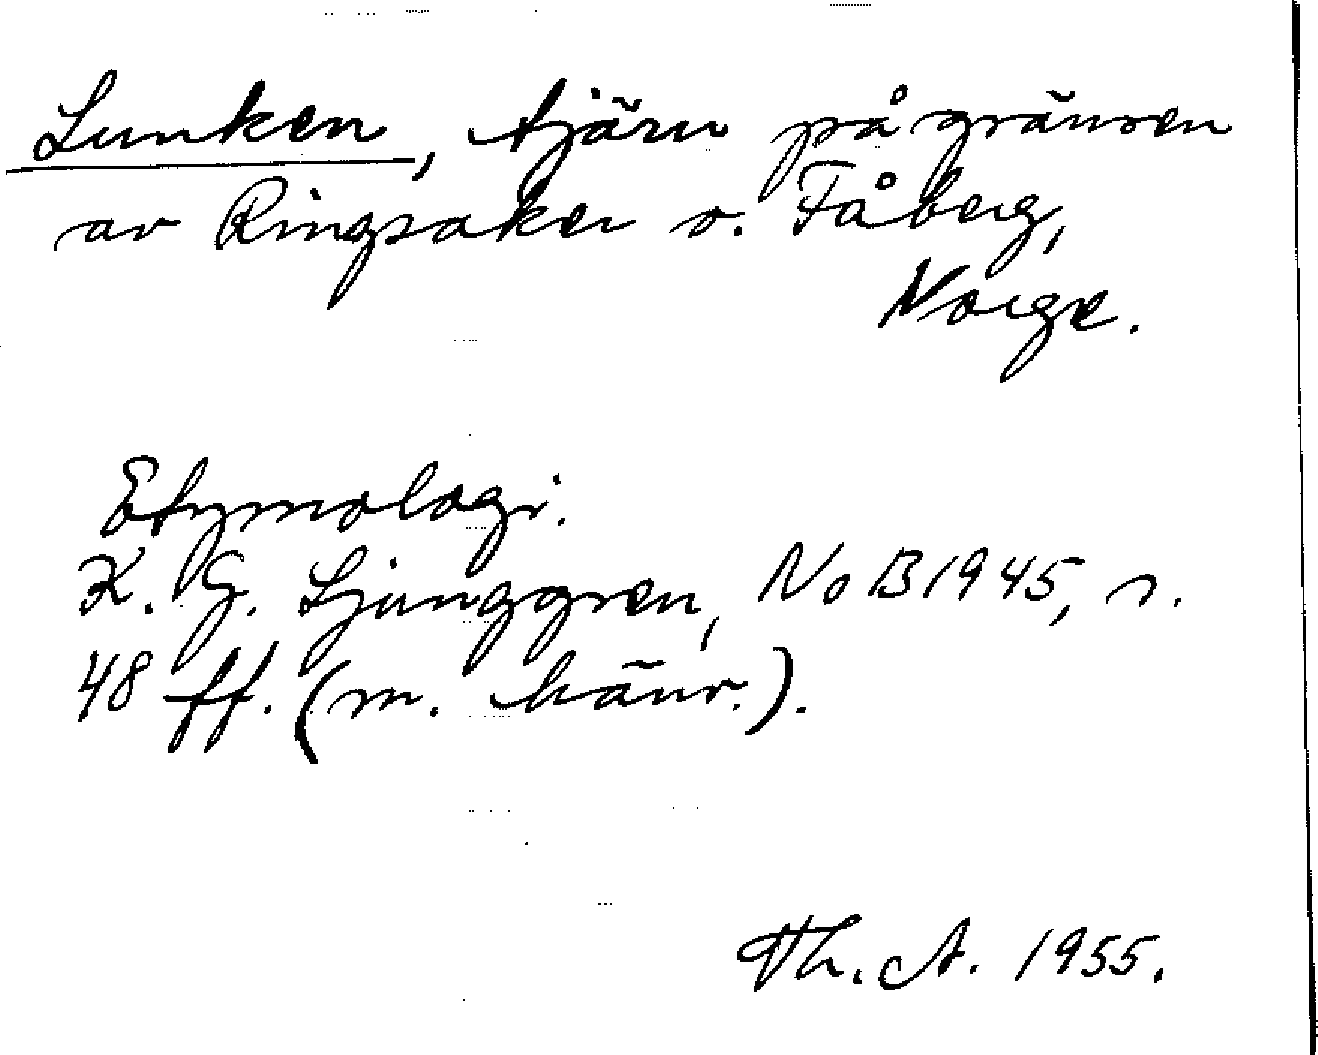 Lunken, tjärn på gränsen
av Ringsaker o. Fåberg,
Norge.
Etymologi.
K. G. Ljunggren, NoB 1945, s.
48 ff. (m. hänv.).
Th. A. 1955.